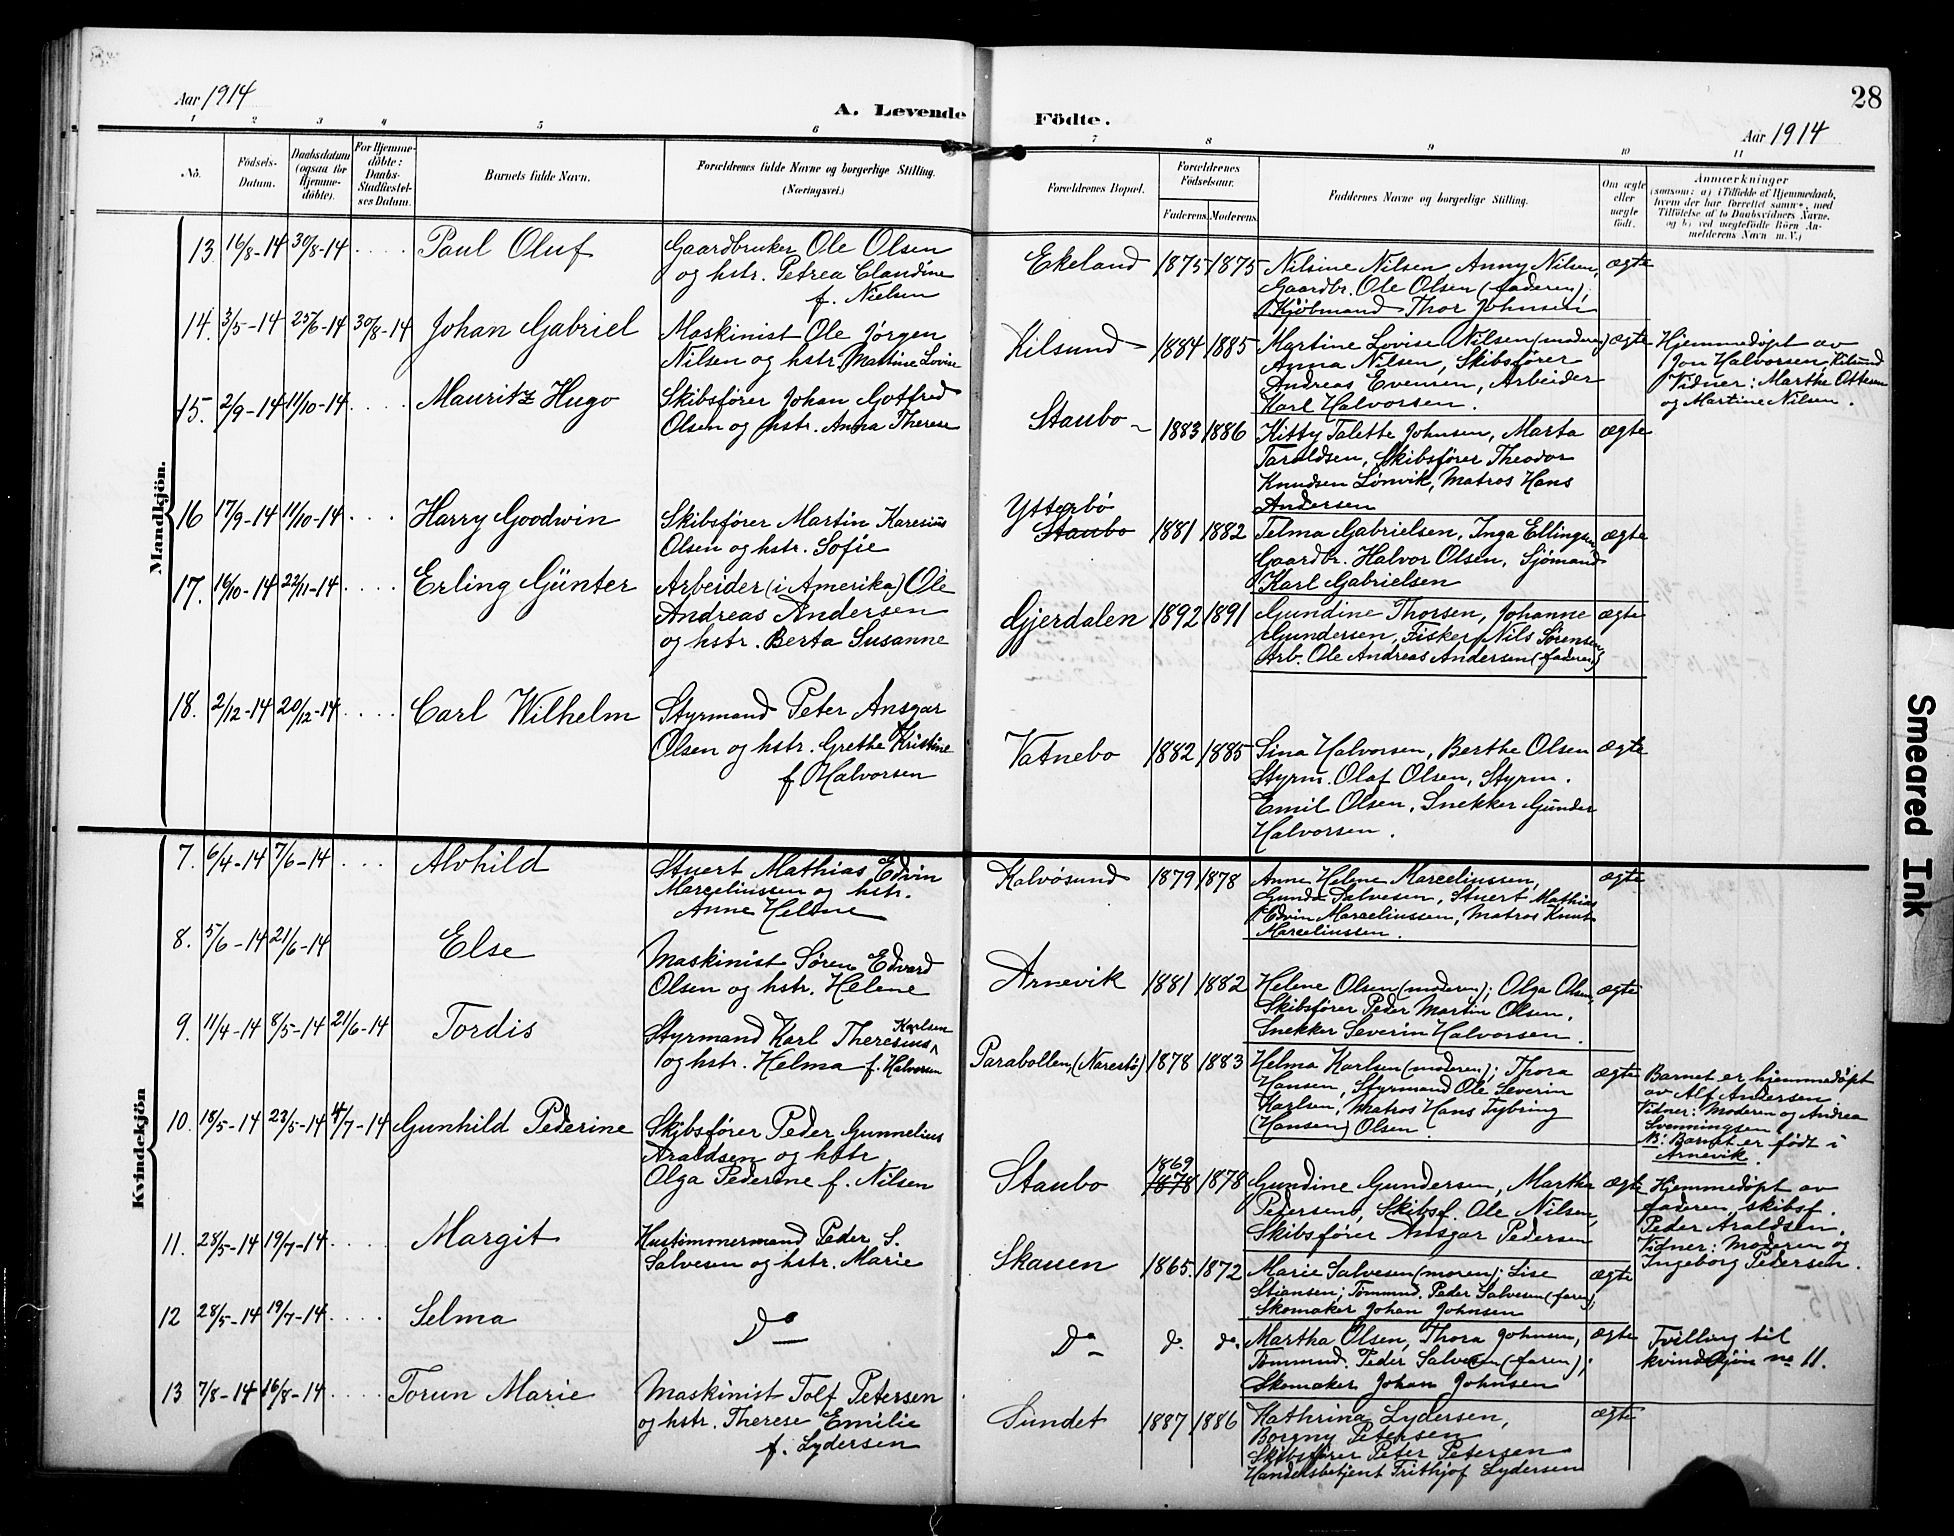 Aar 1914
A. Levende Födte.
28
Aar 1914
1 2 3 4 5 6 7 8 9 10 11
No.
Födsels-Datum.
Daabsdatum (ogsaa for Hjemme-döbte).
For Hjemme-döbte: Daabs-Stadfæstel-ses Datum.
Barnets fulde Navn.
Forældrenes fulde Navne og borgerlige Stilling. (Næringsvei.)
Forældrenes Bopæl.
Forældrenes Födselsaar.
Faderens. Moderens.
Faddernes Navne og borgerlige Stilling.
Om ægte eller uægte födt.
Anmærkninger
(saasom: a) i Tilfælde af Hjemmedaab, hvem der har forrettet samme, med Tilföielse af to Daabsvidners Navne, og b) ved uægtefödte Börn An-melderens Navn m. V.)
Mandkjön.
13. 16/8-14 30/8-14 .... Paul Oluf
Gaardbruker Ole Olsen
og hstr. Petrea Claudine
f. Nielsen
Ekeland 1875 1875
Nilsine Nilsen, Anny Nilsen,
Gaardbr. Ole Olsen (faderen),
Kjöbmand Thor Johnsen
ægte
14. 3/5-14 25/6-14 30/8-14 Johan Gabriel
Maskinist Ole Jørgen
Nilsen og hstr. Martine Lovise
Kilsund 1884 1885
Martine Lovise Nilsen (moderen)
Anna Nilsen, Skibsfører
Andreas Evensen, Arbeider
Karl Halvorsen.
ægte
Hjemmedøpt av
Jon Halvorsen, Kilsund
Vidner: Marthe Ottesen
og Martine Nilsen.
15. 2/9-14 11/10-14 .... Mauritz Hugo
Skibsfører Johan Gotfred
Olsen og hstr. Anna Therese
Staubo 1883 1886
Kitty Talette Johnsen, Marta
Taraldsen, Skibsfører Theodor
Knudsen Lönvik, Matros Hans
Andersen
ægte
16 17/9-14 11/10-14 .... Harry Goodwin
Skibsfører Martin Karesius
Olsen og hstr. Sofie
Ytterbö
Staubo 1881 1882
Telma Gabrielsen, Inga Ellingsen,
Gaardbr. Halvor Olsen, Sjömand
Karl Gabrielsen
ægte
17. 16/10-14 22/11-14 .... Erling Günter
Arbeider (i Amerika) Ole
Andreas Andersen
og hstr. Berta Susanne
Gjerdalen 1892 1891
Gundine Thorsen, Johanne
Gundersen, Fisker Nils Sørensen,
Arb. Ole Andreas Andersen (faderen)
ægte
18. 2/12-14 20/12-14 .... Carl Wilhelm
Styrmand Peter Ansgar
Olsen og hstr. Grethe Kristine
f. Halvorsen
Vatnebo 1882 1885
Sina Halvorsen, Berthe Olsen
Styrm. Olaf Olsen, Styrm.
Emil Olsen, Snekker Gunder
Halvorsen.
ægte
Kvindekjön
7. 6/4-14 7/6-14 ... Alvhild
Stuert Mathias Edvin
Marceliussen og hstr.
Anne Helene
Kalvøsund 1879 1878
Anne Helene Marceliussen,
Gunda Salvesen, Stuert Mathias
Edvin Marceliussen, Matros Knut
Marceliussen.
ægte
8. 5/6-14 21/6-14 Else
Maskinist Søren Edvard
Olsen og hstr. Helene
Arnevik 1881 1882
Helene Olsen (moderen); Olga Olsen,
Skibsfører Peder Martin Olsen,
Snekker Severin Halvorsen.
ægte
9. 11/4-14 8/5-14 21/6-14 Tordis
Styrmand Karl Theresius Karlsen
og hstr. Helma f. Halvorsen
Parabollen, (Narestö) 1878 1883
Helma Karlsen (moderen); Thora
Hansen, Styrmand Ole Severin
Karlsen, Matros Hans Tybring
(Hansen) Olsen.
ægte
Barnet er hjemmedøpt
av Alf Andersen
Vidner: Moderen og Andrea
Svenningsen.
NB: Barnet er født i
Arnevik.
10. 18/5-14 23/5-14 4/7-14 Gunhild Pederine
Skibsfører Peder Gunnelius
Araldsen og hstr.
Olga Pederine f. Nilsen
Staubo 1869 1878 1878
Gundine Gundersen, Martha
Pedersen, Skibsf. Ole Nilsen,
Skibsfører Ansgar Pedersen
ægte
Hjemmedøpt av
faderen, skibsf.
Peder Araldsen.
Vidner: Moderen og
Ingeborg Pedersen.
11. 28/5-14 19/7-14 .... Margit
Hustømmermand Peder S.
Salvesen og hstr. Marie
Skauen 1865. 1872
Marie Salvesen (moren); Lise
Stiansen; Tømmmd. Peder Salvesen (faren);
Skomaker Johan Johnsen
ægte
12 28/5-14 19/7-14 .... Selma
Do
Do do. do.
Martha Olsen, Thora Johnsen,
Tømmmd. Peder Salvesen (faren);
Skomaker Johan Johnsen
ægte
Tvilling til
kvindekjön no 11.
13 7/8-14 16/8-14 .... Torun Marie
Maskinist Tolf Petersen
og hstr. Therese Emilie
f. Lydersen
Sundet 1887 1886
Kathrina Lydersen,
Borgny Petersen
Skibsfører Peter Petersen
Handelsbetjent Frithjof Lydersen
ægte
Smeared Ink